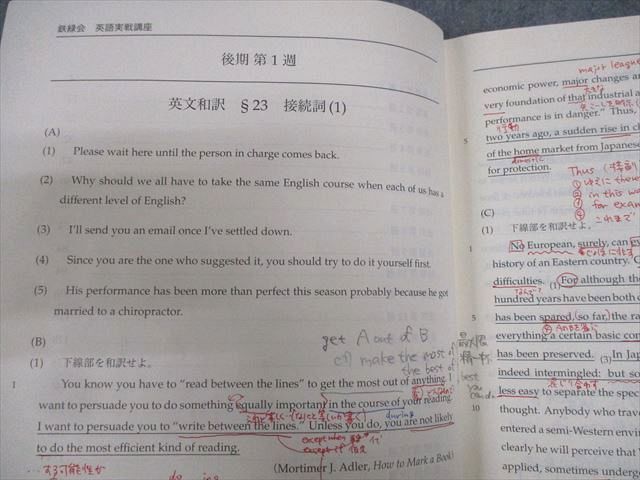 鉄緑会 英語実戦講座
後期 第1週
英文和訳 §23 接続詞(1)
(A)
(1) Please wait here until the person in charge comes back.
(2) Why should we all have to take the same English course when each of us has a
different level of English?
(3) I'll send you an email once I've settled down.
(4) Since you are the one who suggested it, you should try to do it yourself first.
(5) His performance has been more than perfect this season probably because he got
married to a chiropractor.
(B)
get A out of B
cf) make the most of
the best of
(1) 下線部を和訳せよ。
1 You know you have to "read between the lines" to get the most out of anything. I
want to persuade you to do something equally important in the course of your reading.
during
I want to persuade you to "write between the lines." Unless you do, you are not likely
except when
except if
to do the most efficient kind of reading.
(Mortimer J. Adler, How to Mark a Book)
major league
economic power, major changes a
very foundation of that industrial a
performance is in danger." Thus,
two years ago, a sudden rise in c
5 of the home market from Japanese
domestic
for protection.
Thus
① ゆえに
② in this wa
③ for exam
④ これまで
(C)
(1) 下線部を和訳せよ。
1 No European, surely, can
history of an Eastern country.
difficulties. (1)For although the
hundred years have been both
has been spared, (so far,) the ra
5 everything a certain basic con
has been preserved. (3) In Jap
indeed intermingled: but so
less easy to separate the spec
10 thought. Anybody who trav
entered a semi-Western enviro
clearly he will perceive that W
applied, sometimes underge